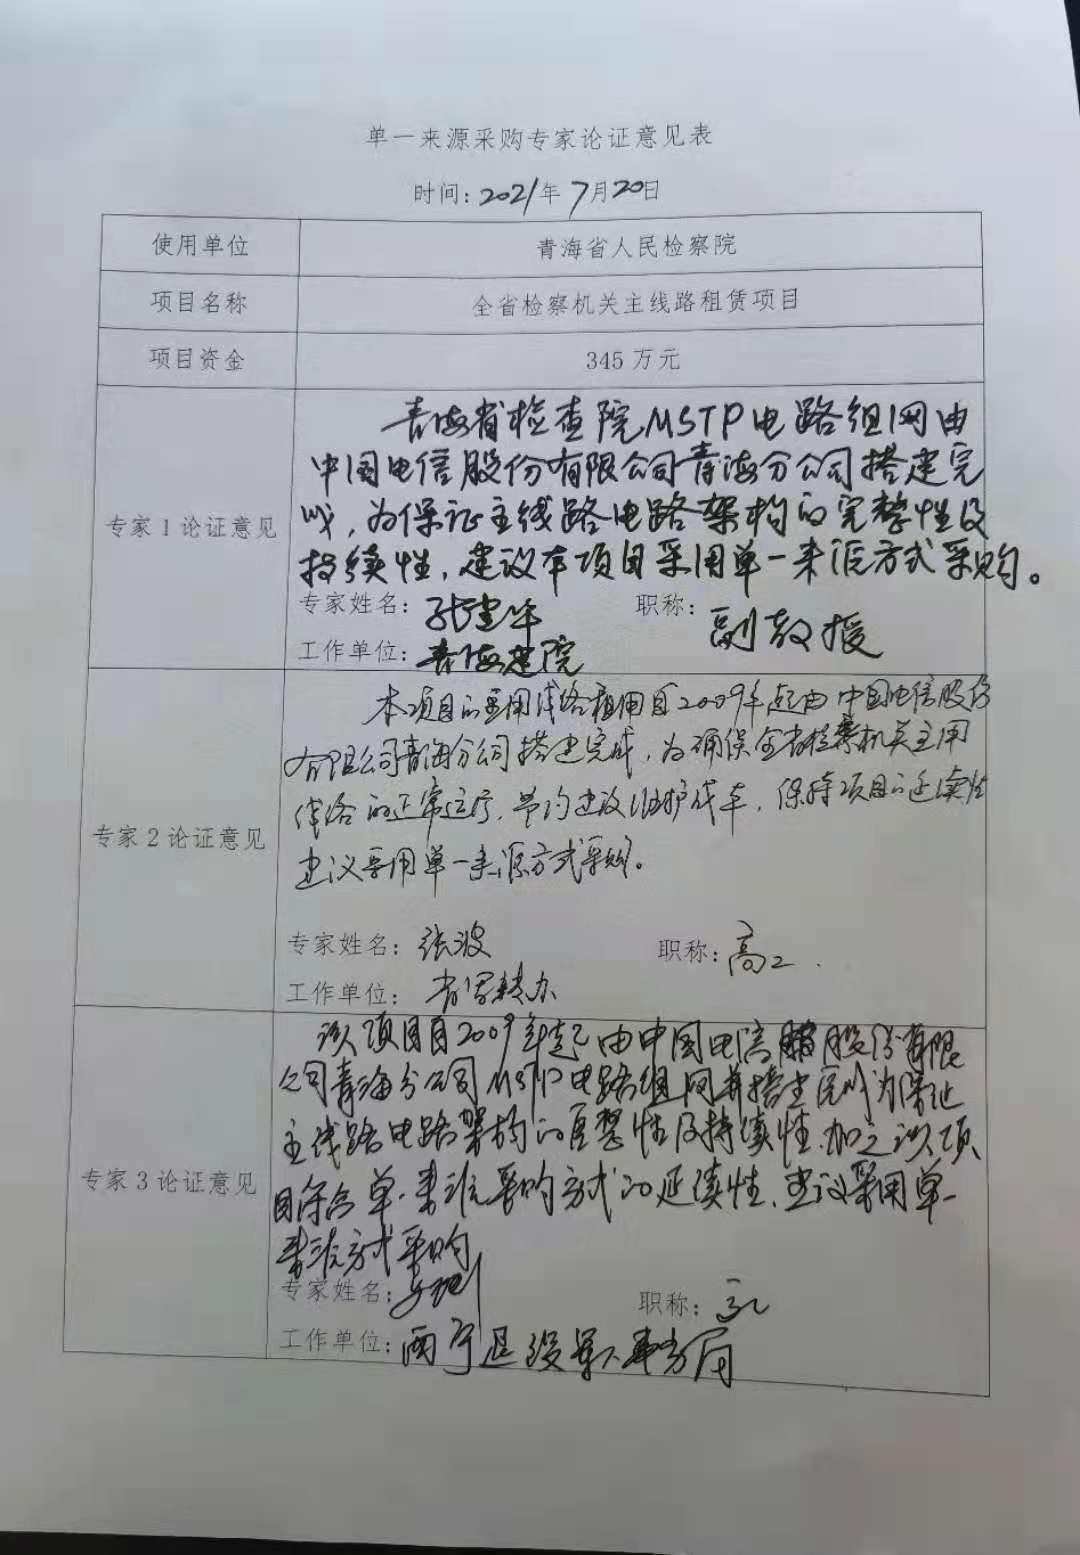 单一来源采购专家论证意见表
时间：2021年7月20日
使用单位 青海省人民检察院
项目名称 全省检察机关主线路租赁项目
项目资金 345万元
专家1论证意见
青海省检查院MSTP电路组网由
中国电信股份有限公司青海分公司搭建完
成，为保证主线路电路架构的完整性及
持续性，建议本项目采用单一来源方式采购。
专家姓名： 职称：副教授
工作单位：青海建院
专家2论证意见
本项目的主用线路租用自2009年起由中国电信股份
有限公司青海分公司搭建完成，为确保全省检察机关主用
线路的正常运行，节约建设维护成本，保持项目的延续性
建议采用单一来源方式采购。
专家姓名：张波 职称：高工
工作单位：
专家3论证意见
该项目自2009年起由中国电信股份有限
公司青海分公司MSTP电路组网并搭建完成为保证
主线路电路架构的完整性及持续性，加之该项
目符合单一来源采购方式的延续性，建议采用单一
来源方式采购
专家姓名： 职称：高工
工作单位：西宁退役军人事务局